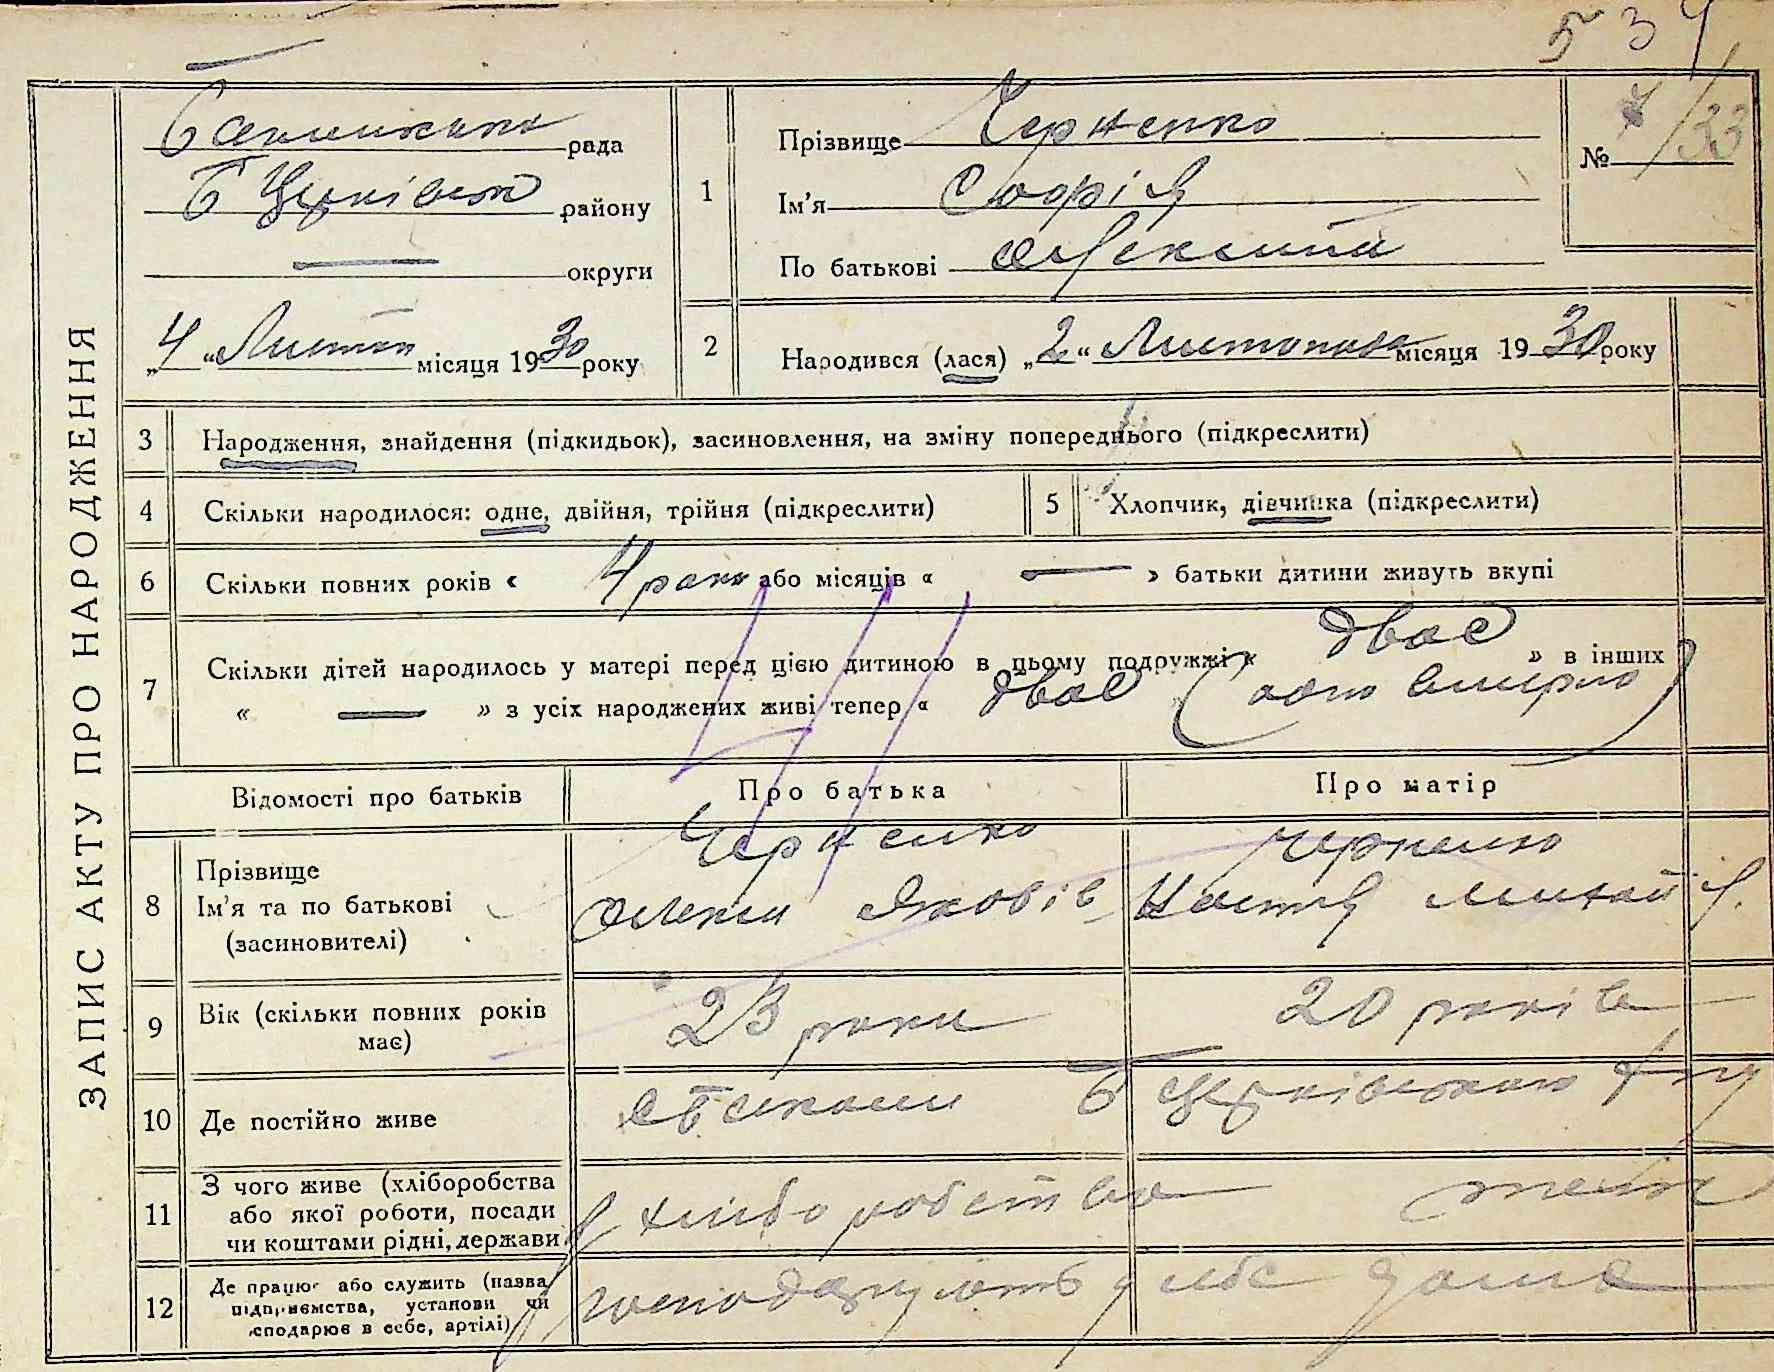 534
ЗАПИС АКТУ ПРО НАРОДЖЕННЯ
рада
Б Церківськ району
— округи
„4“ Листоп місяця 1930 року
1
Прізвище Черненко
Ім'я Софія
По батькові Олексіїв
№ /33
2
Народився (лася) „2“ Листопада місяця 1930 року
3 Народження, знайдення (підкидьок), засиновлення, на зміну попереднього (підкреслити)
4 Скільки народилося: одне, двійня, трійня (підкреслити)
5 Хлопчик, дівчинка (підкреслити)
6 Скільки повних років « 4 роки або місяців « — » батьки дитини живуть вкупі
7 Скільки дітей народилось у матері перед цією дитиною в цьому подружжі « двоє » в інших
« — » з усіх народжених живі тепер « двоє (одно вмерло)
Відомості про батьків Про батька Про матір
8 Прізвище
Ім'я та по батькові
(засиновителі)
Черненко
Олекси Яковів
Черненко
Настя Михайл.
9 Вік (скільки повних років
має)
23 роки
20 років
10 Де постійно живе
Б Церківського р-ну
11 З чого живе (хліборобства
або якої роботи, посади
чи коштами рідні, держави
хліборобство
теж
12 Де працює або служить (назва
підприємства, установи чи
сподарює в себе, артілі)
у себе дома